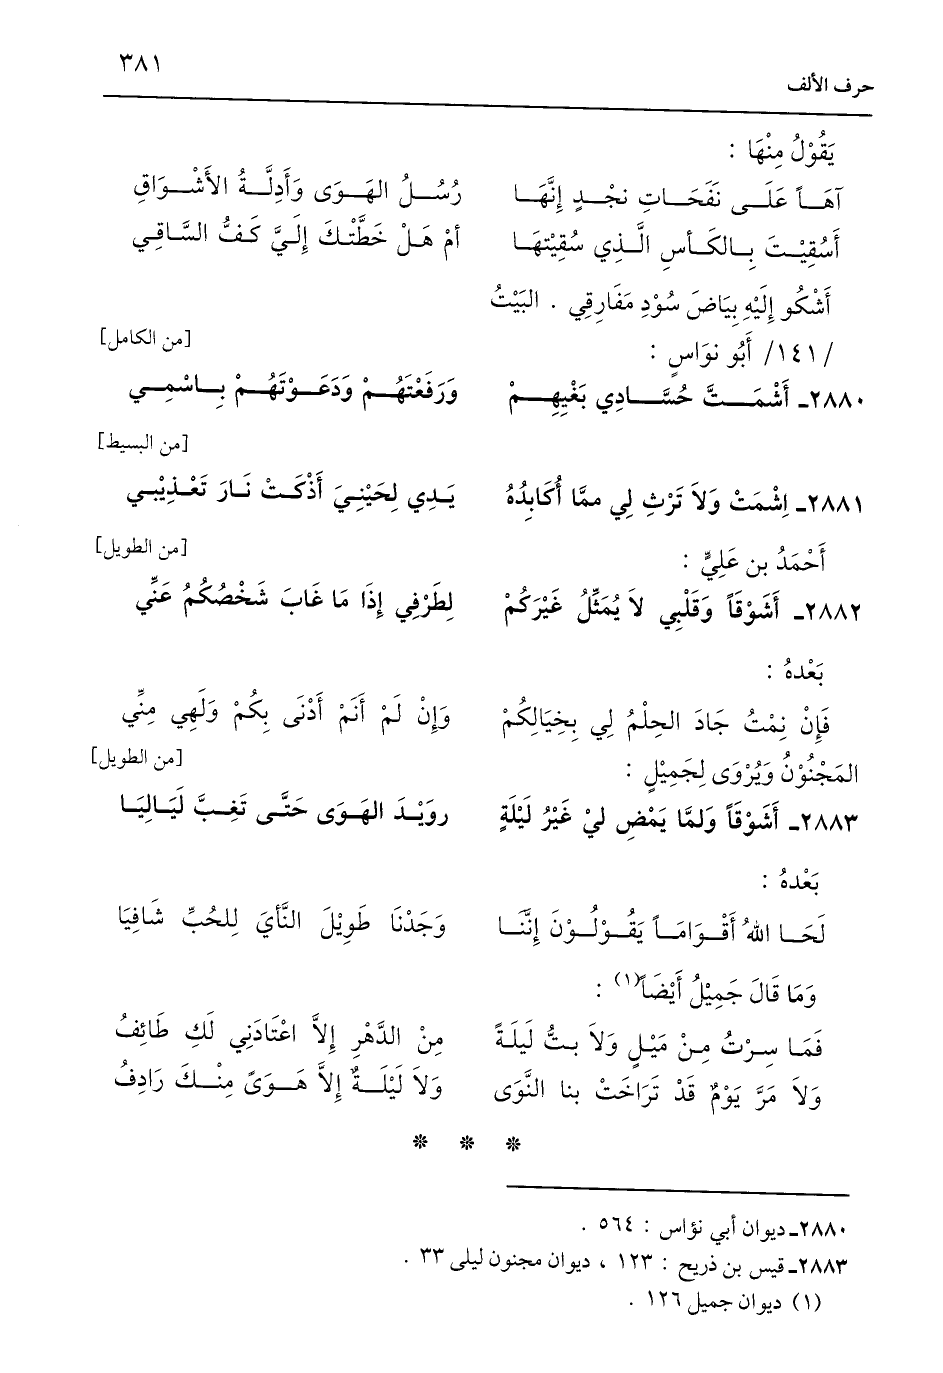 ٣٨١
حرف الألف
يَقُوْلُ مِنْهَا :
آهَاً عَلَى نَفَحَاتِ نجْدٍ إِنَّهَا رُسُلُ الهَوَى وَأَدِلَّةُ الأَشْوَاقِ
أَسُقِيْتَ بِالكَأسِ الَّذِي سُقِيْتهَا أمْ هَلْ خَطَّتْكَ إِلَيَّ كَفُّ السَّاقِي
أَشْكُو إِلَيْهِ بِيَاضَ سُوْدِ مَفَارِقِي . البَيْتُ
[من الكامل]
/١٤١/ أَبُو نوَاسٍ :
٢٨٨٠ـ أَشْمَتَّ حُسَّادِي بَغْيِهِمْ وَرَفَعْتَهُمْ وَدَعَوْتَهُمْ بِاسْمِي
[من البسيط]
٢٨٨١ـ اِشْمَتْ وَلاَ تَرْثِ لِي ممَّا أُكَابِدُهُ يَدِي لِحَيْنِيَ أَذْكَتْ نَارَ تَعْذِيْبي
[من الطويل]
أَحْمَدُ بن عَلِيٍّ :
٢٨٨٢ـ أَشَوْقَاً وَقَلْبِي لاَ يُمَثِّلُ غَيْرَكُمْ لِطَرْفِي إِذَا مَا غَابَ شَخْصُكُمُ عَنِّي
بَعْدهُ :
فَإِنْ نِمْتُ جَادَ الحِلْمُ لِي بِخِيَالِكُمْ وَإِنْ لَمْ أَنَمْ أَدْنَى بِكُمْ وَلَهِي مِنِّي
[من الطويل]
المَجْنُوْنُ وَيُرْوَى لِجَمِيْلٍ :
٢٨٨٣ـ أَشَوْقَاً وَلمَّا يَمْضِ لِيْ غَيْرُ لَيْلَةٍ رويْدَ الهَوى حَتَّى تَغِبَّ لَيَالِيَا
بَعْدهُ :
لَحَا اللهُ أَقْوَامَاً يَقُوْلُوْنَ إِنَّنَا وَجَدْنَا طَوِيْلَ النَّأيَ لِلحُبِّ شَافِيَا
وَمَا قَالَ جَمِيْلُ أَيْضَاً(١) :
فَمَا سِرْتُ مِنْ مَيْلٍ وَلاَ بتُّ لَيْلَةً مِنْ الدَّهْرِ إِلاَّ اعْتَادَنِي لَكِ طَائِفُ
وَلاَ مَرَّ يَوْمٌ قَدْ تَرَاخَتْ بنا النَّوَى وَلاَ لَيْلَةٌ إِلاَّ هَوَىً مِنْكَ رَادِفُ
* * *
٢٨٨٠ـ ديوان أبي نؤاس : ٥٦٤ .
٢٨٨٣ـ قيس بن ذريح : ١٢٣ ، ديوان مجنون ليلى ٣٣ .
(١) ديوان جميل ١٢٦ .